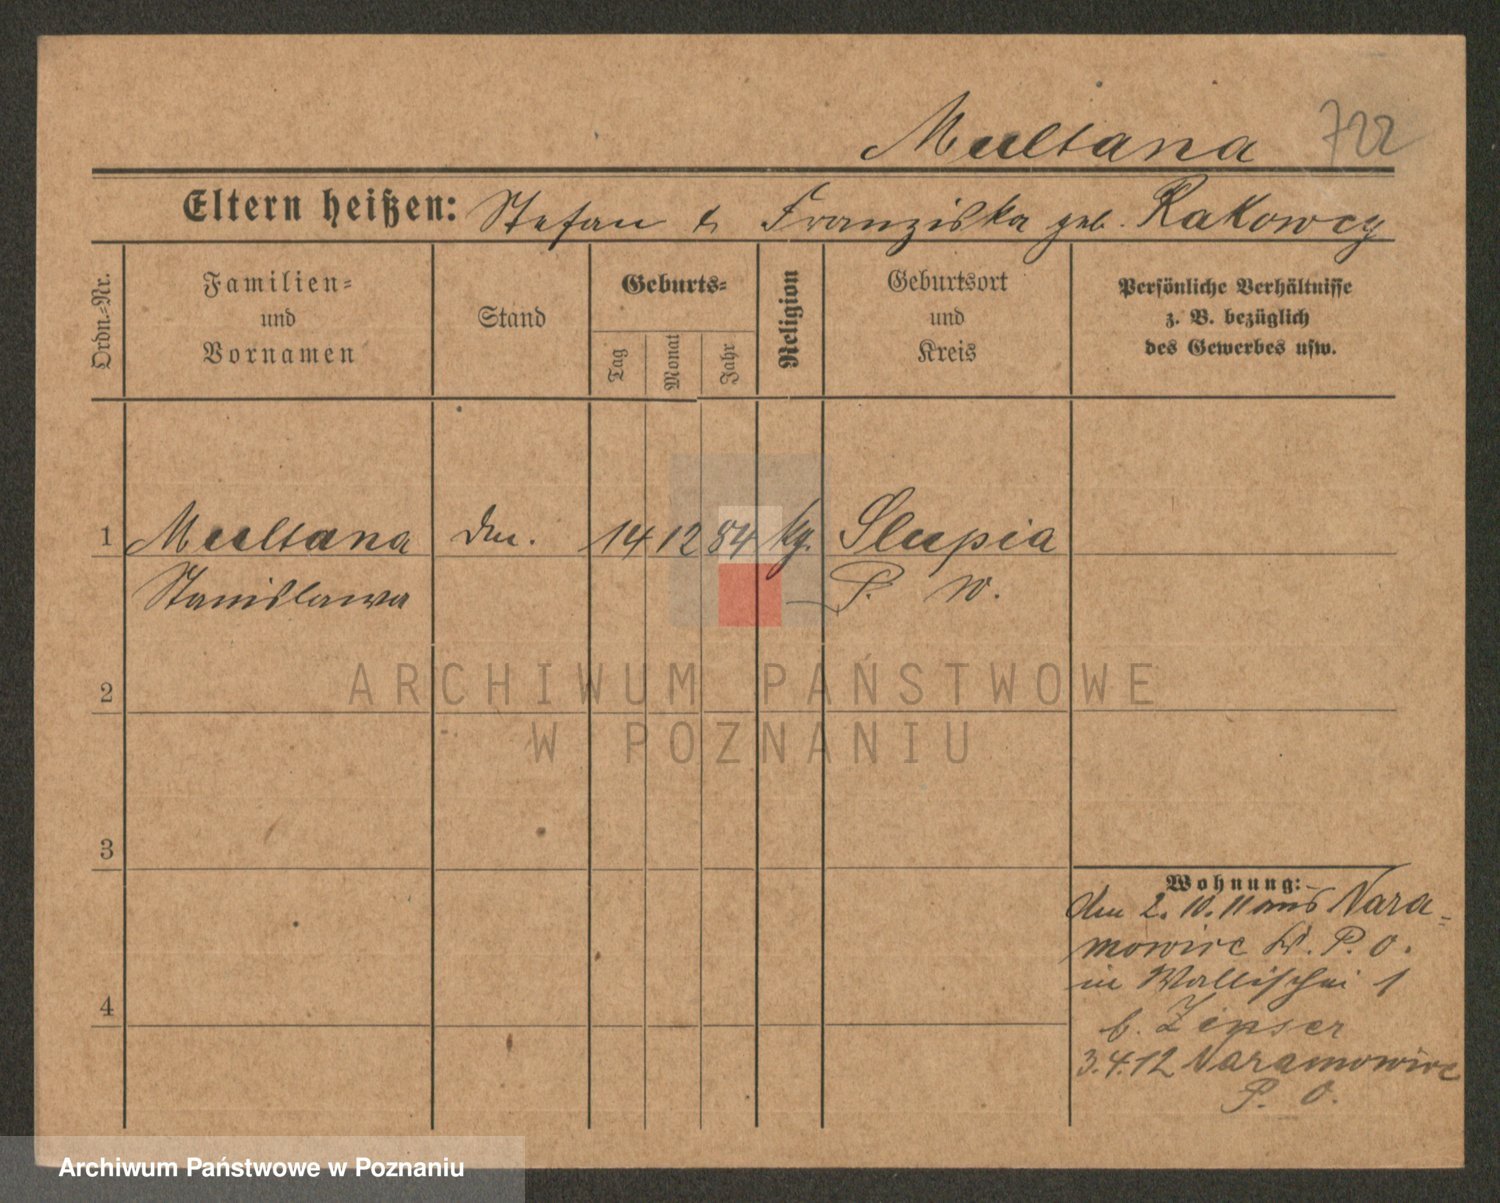 Multana 722
Eltern heißen: Stefan & Franziska geb. Rakowcy
Ordn.-Nr.
Familien-
und
Vornamen
Stand
Geburts-
Tag
Monat
Jahr
Religion
Geburtsort
und
Kreis
Persönliche Verhältnisse
z. B. bezüglich
des Gewerbes usw.
1 Multana 14 12 84 kg. Slupia
Stanislawa P. W.
2
3
4
Wohnung:
den 2. 10. 11 aus Nara-
mowice Kr. P. O.
in Wallischei 1
b. Zipser
3.4.12 Naramowice
P. O.
ARCHIWUM PAŃSTWOWE
W POZNANIU
Archiwum Państwowe w Poznaniu